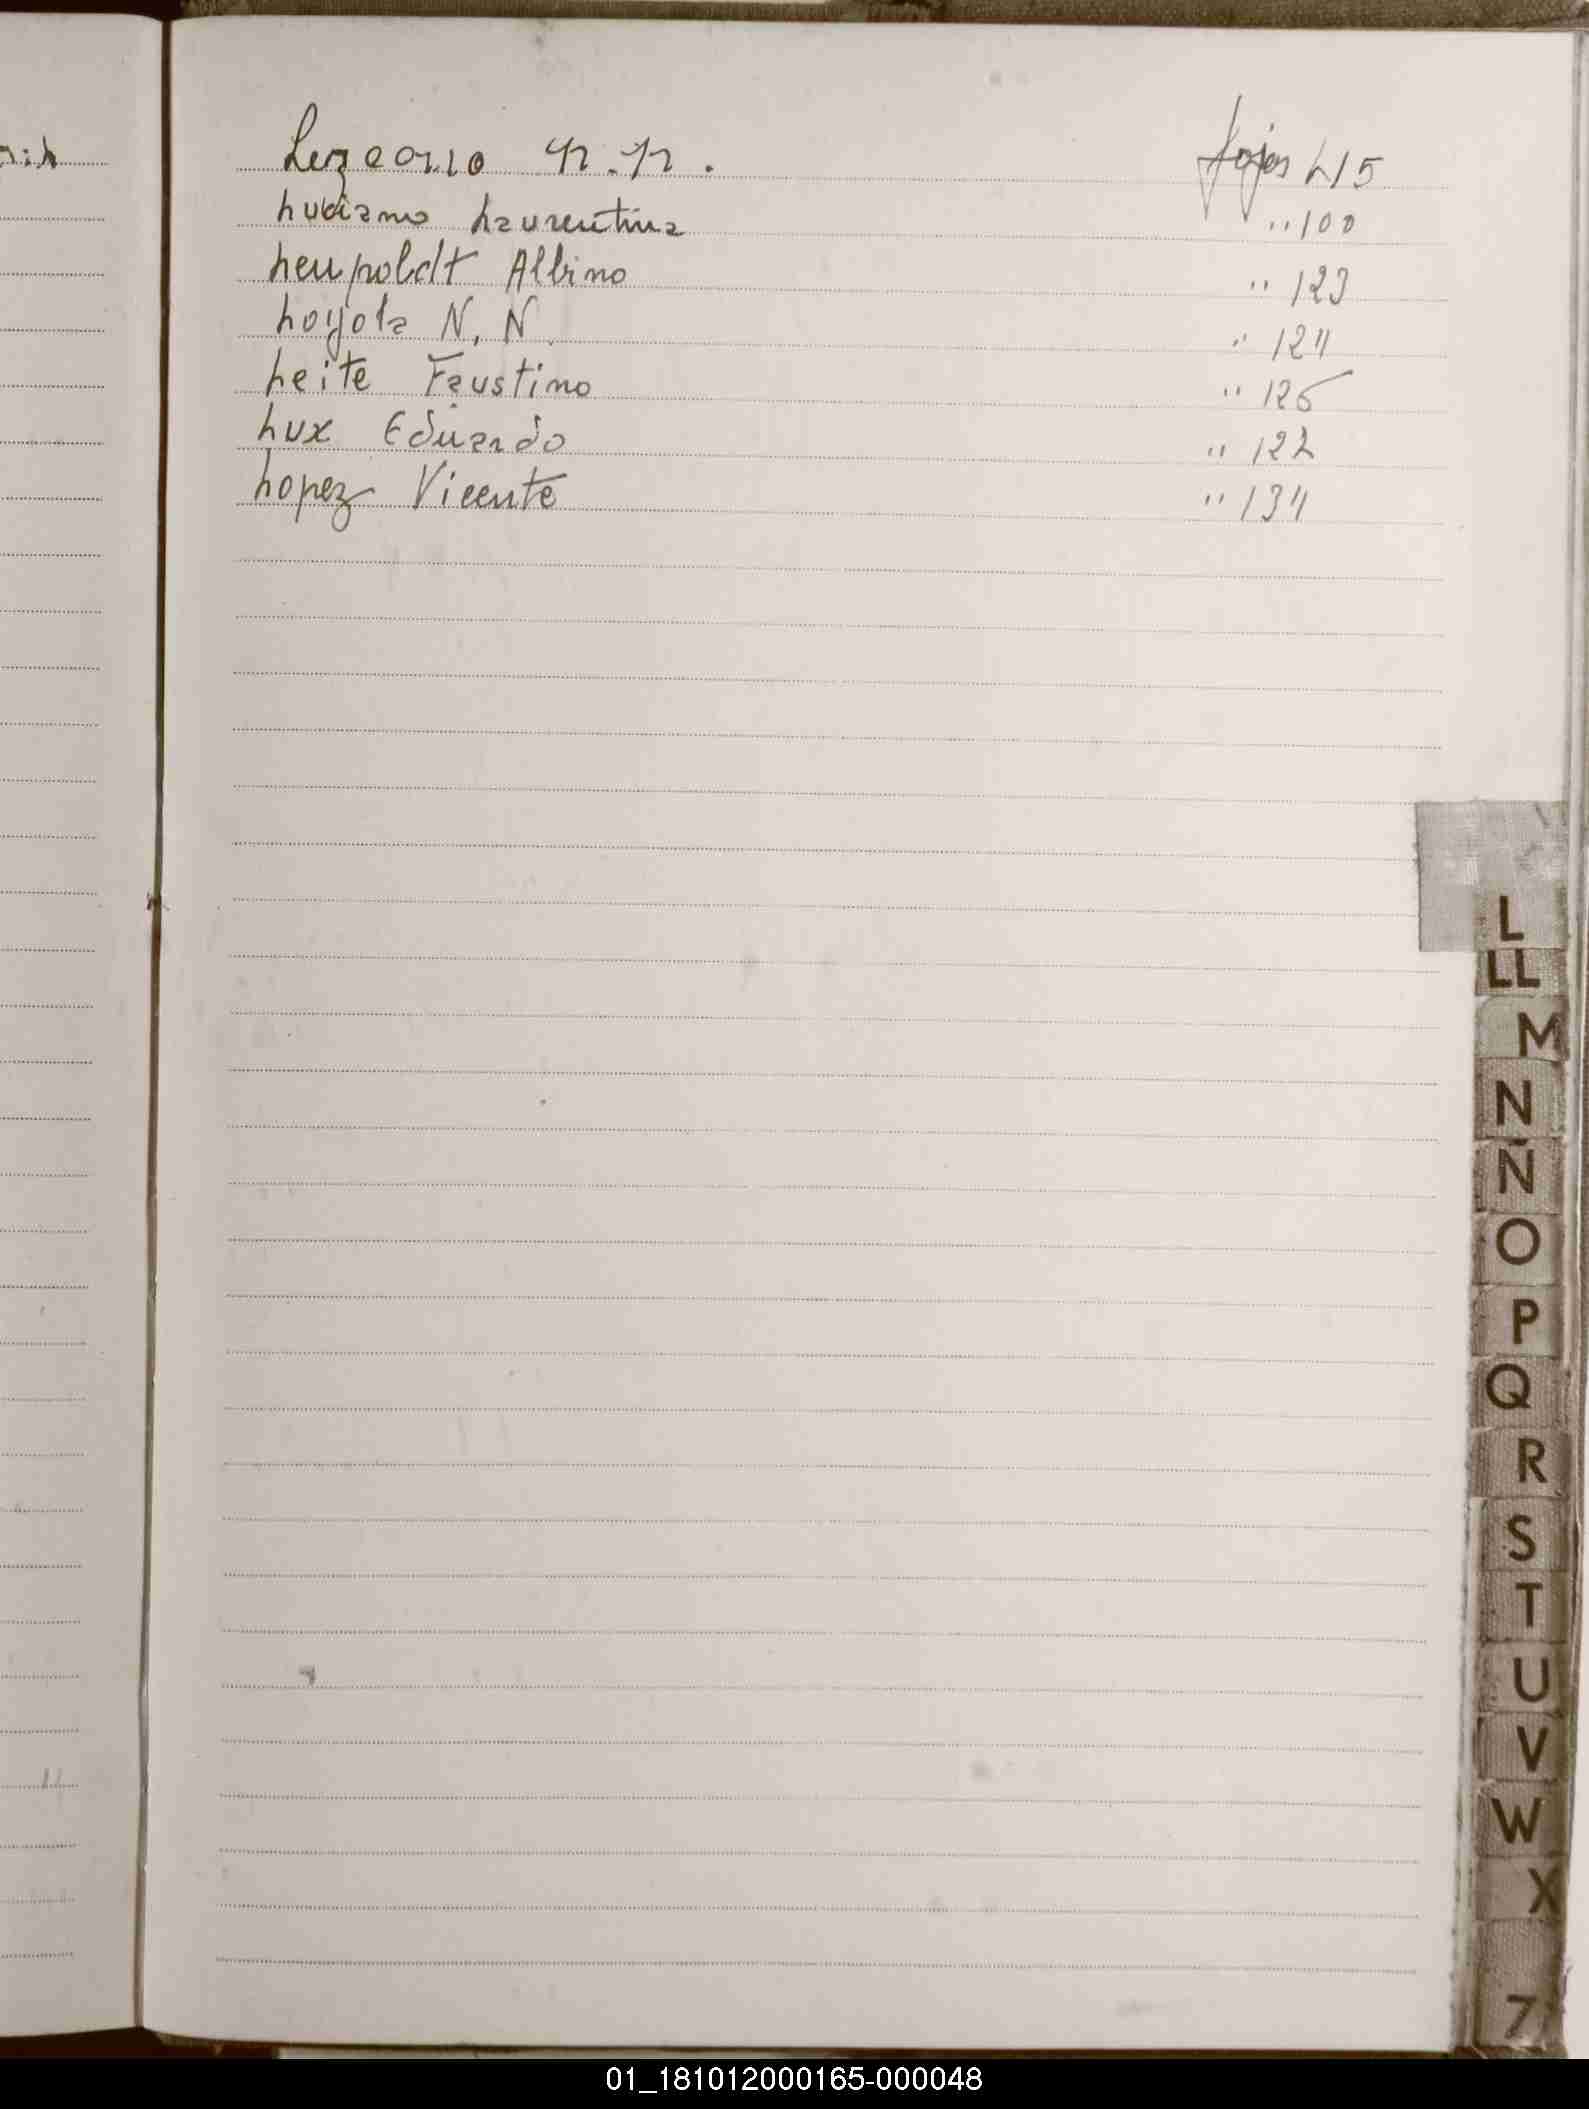 Lezcano N.N. fojas 45
Luciano Laurentina " 100
Leupoldt Albino " 123
Loyola N. N. " 124
Leite Faustino " 125
Lux Eduardo " 122
Lopez Vicente " 134
L
LL
M
N
Ñ
O
P
Q
R
S
T
U
V
W
X
Z
01_181012000165-000048